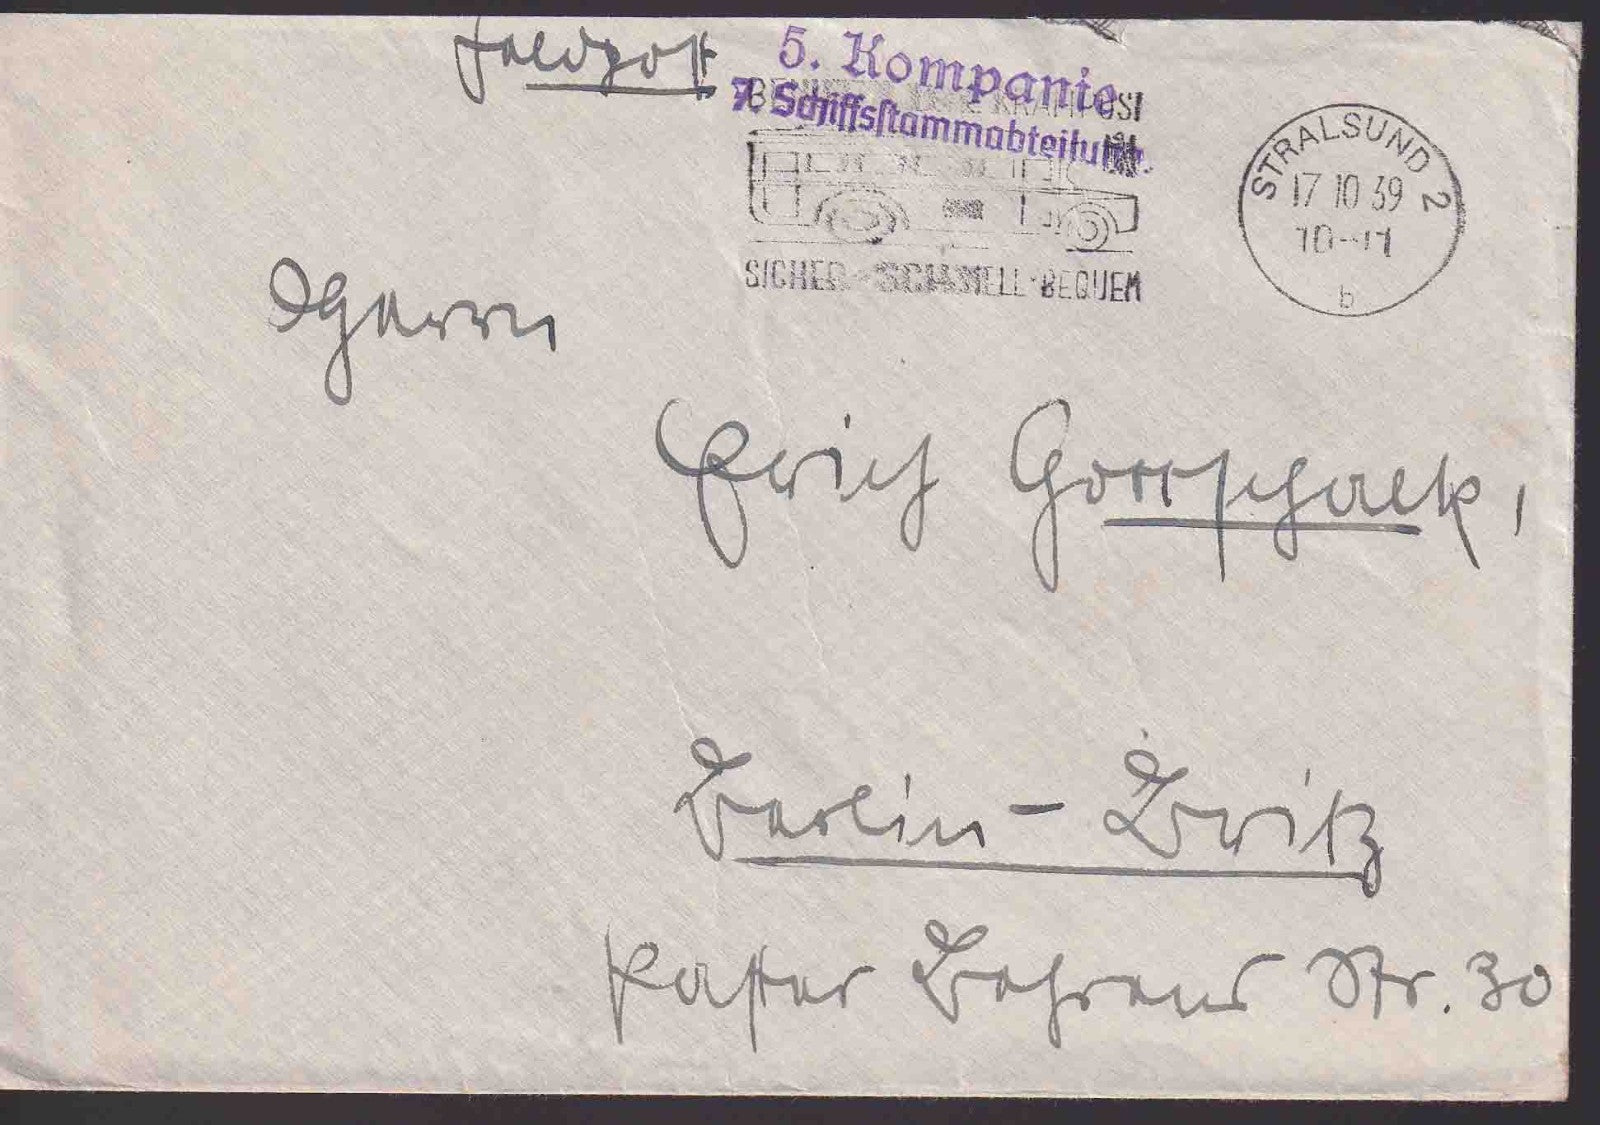 Feldpost
5. Kompanie
7. Schiffsstammabteilung.
SICHER · SCHNELL · BEQUEM
STRALSUND 2
17 10 39
10-11
b
Herrn
Erich Gottschalk,
Berlin - Britz
Pastor Behrens Str. 30